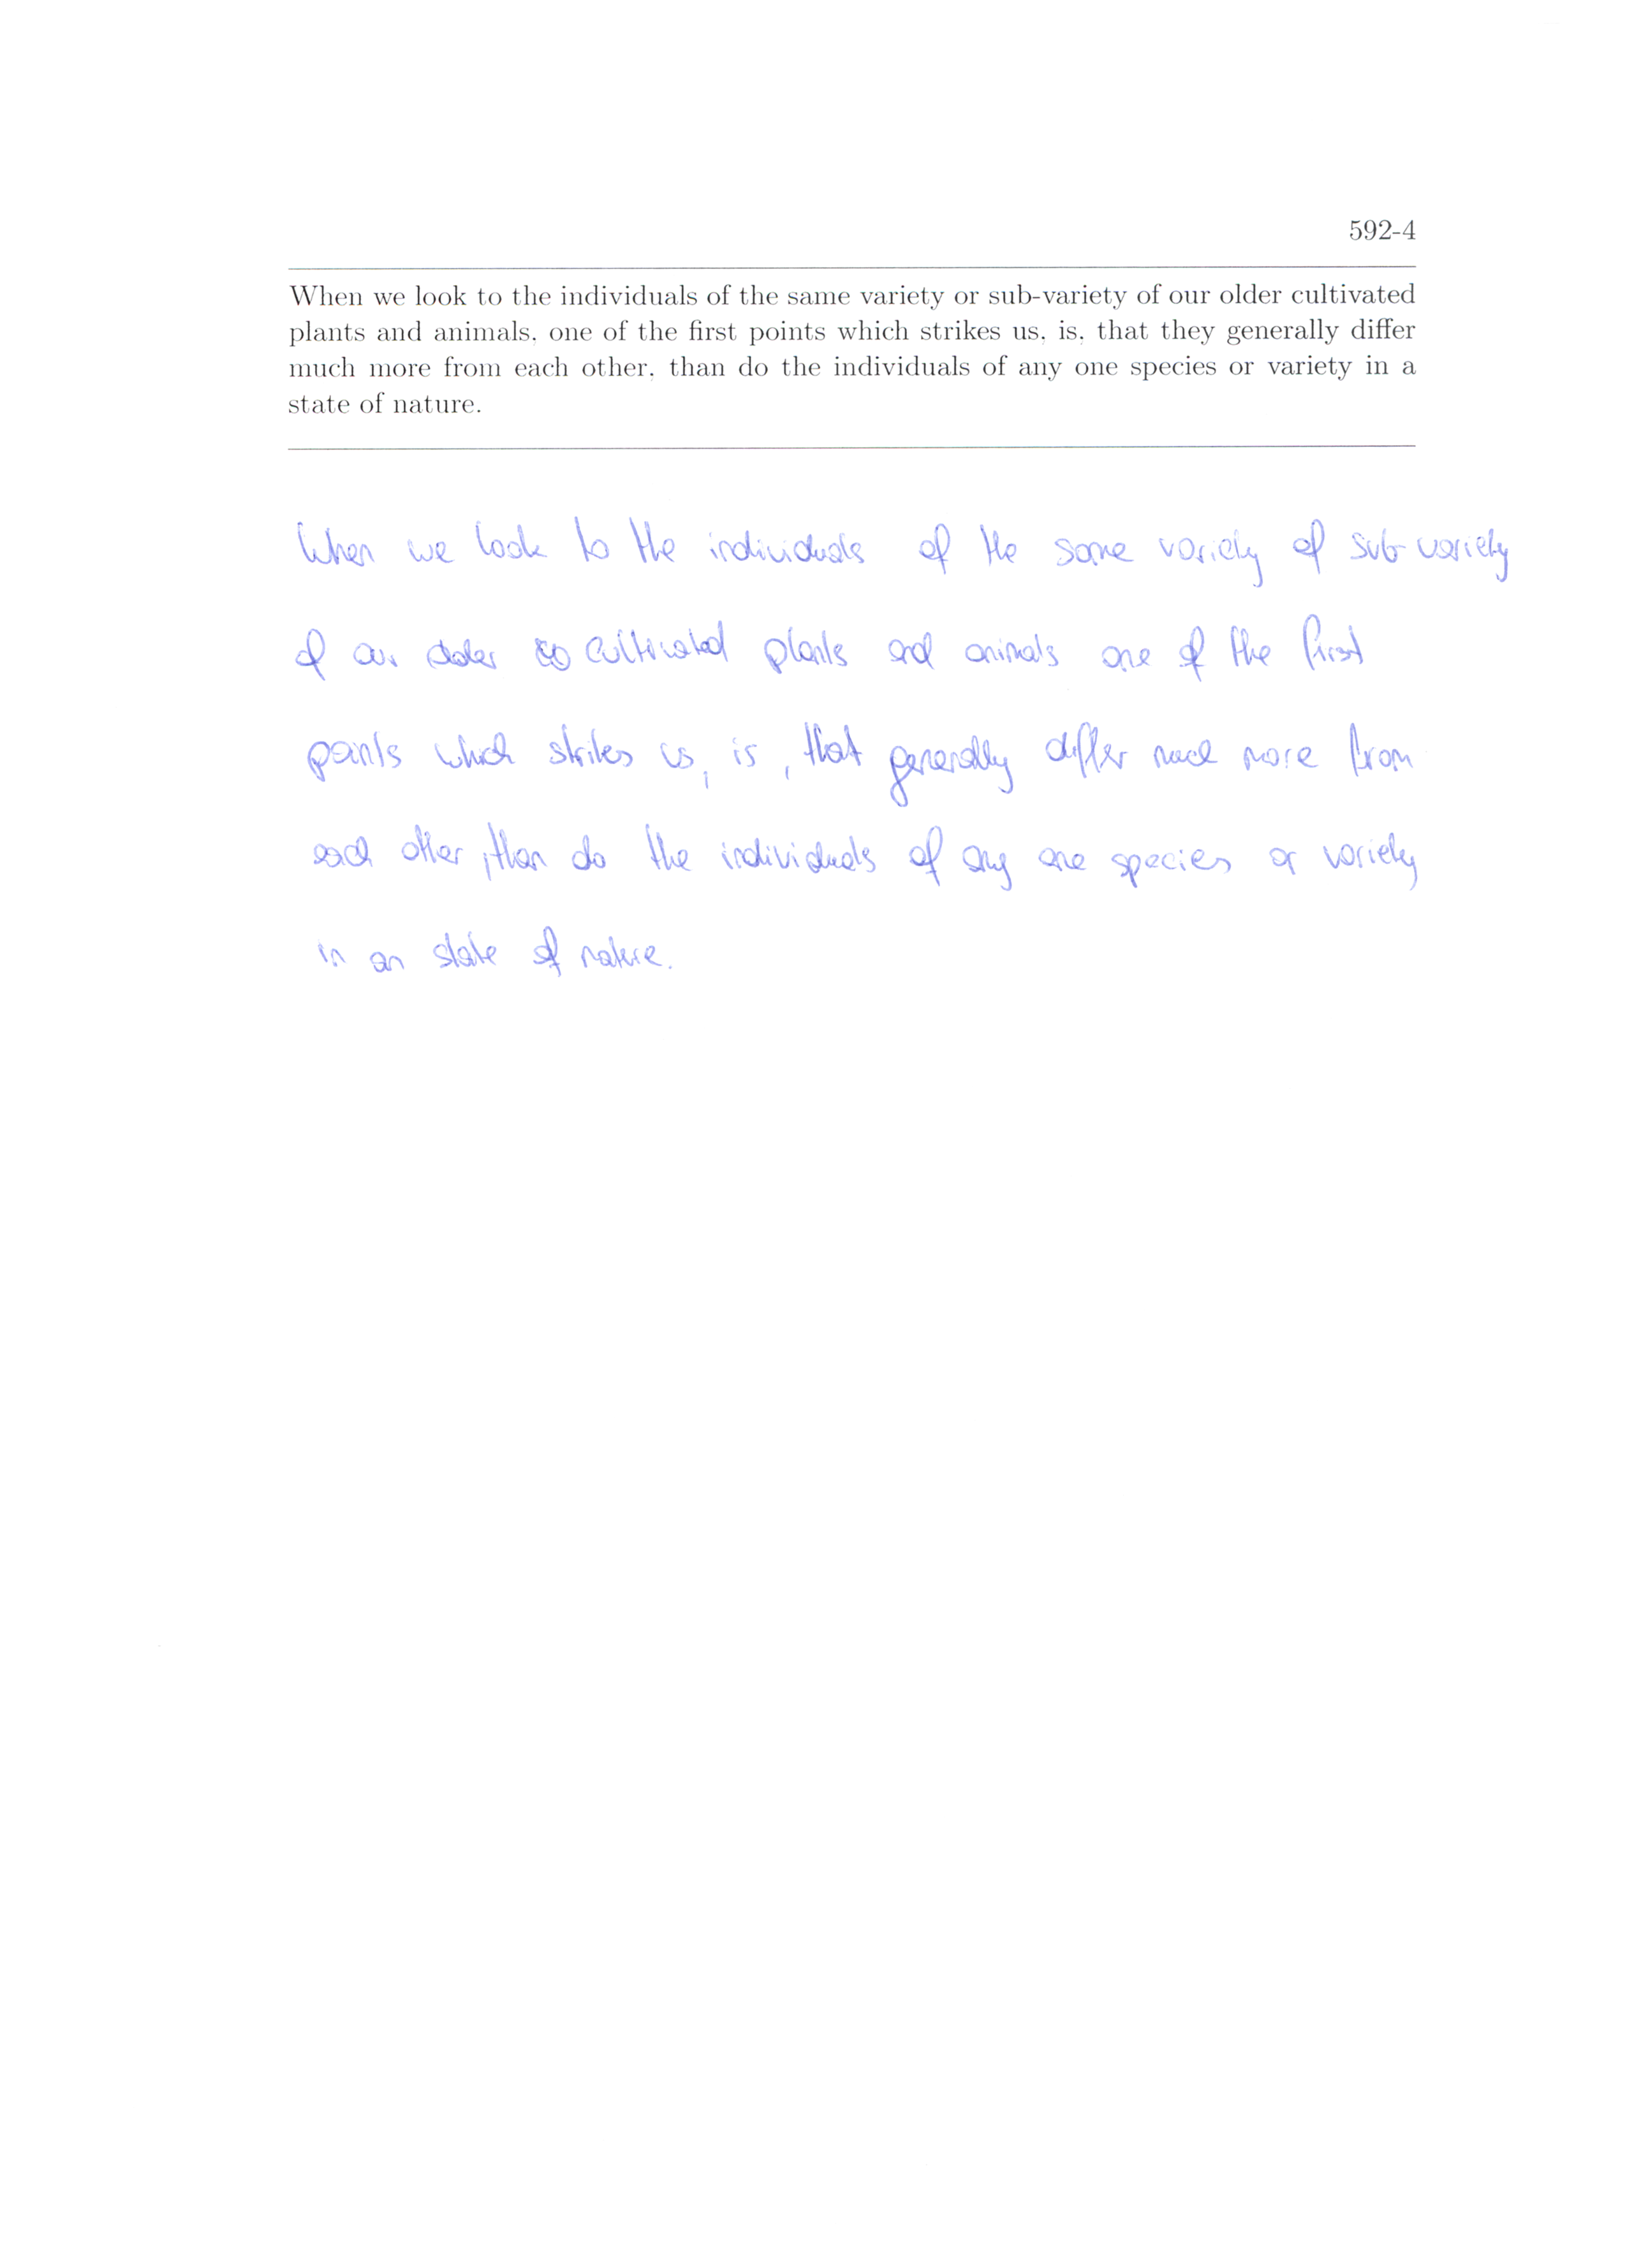 592-4
When we look to the individuals of the same variety or sub-variety of our older cultivated
plants and animals, one of the first points which strikes us, is, that they generally differ
much more from each other, than do the individuals of any one species or variety in a
state of nature.
When we look to the individuals of the same variety of sub-variety
of our older cultivated plants and animals one of the first
points which strikes us, is, that generally differ much more from
each other, than do the individuals of any one species or variety
in an state of nature.